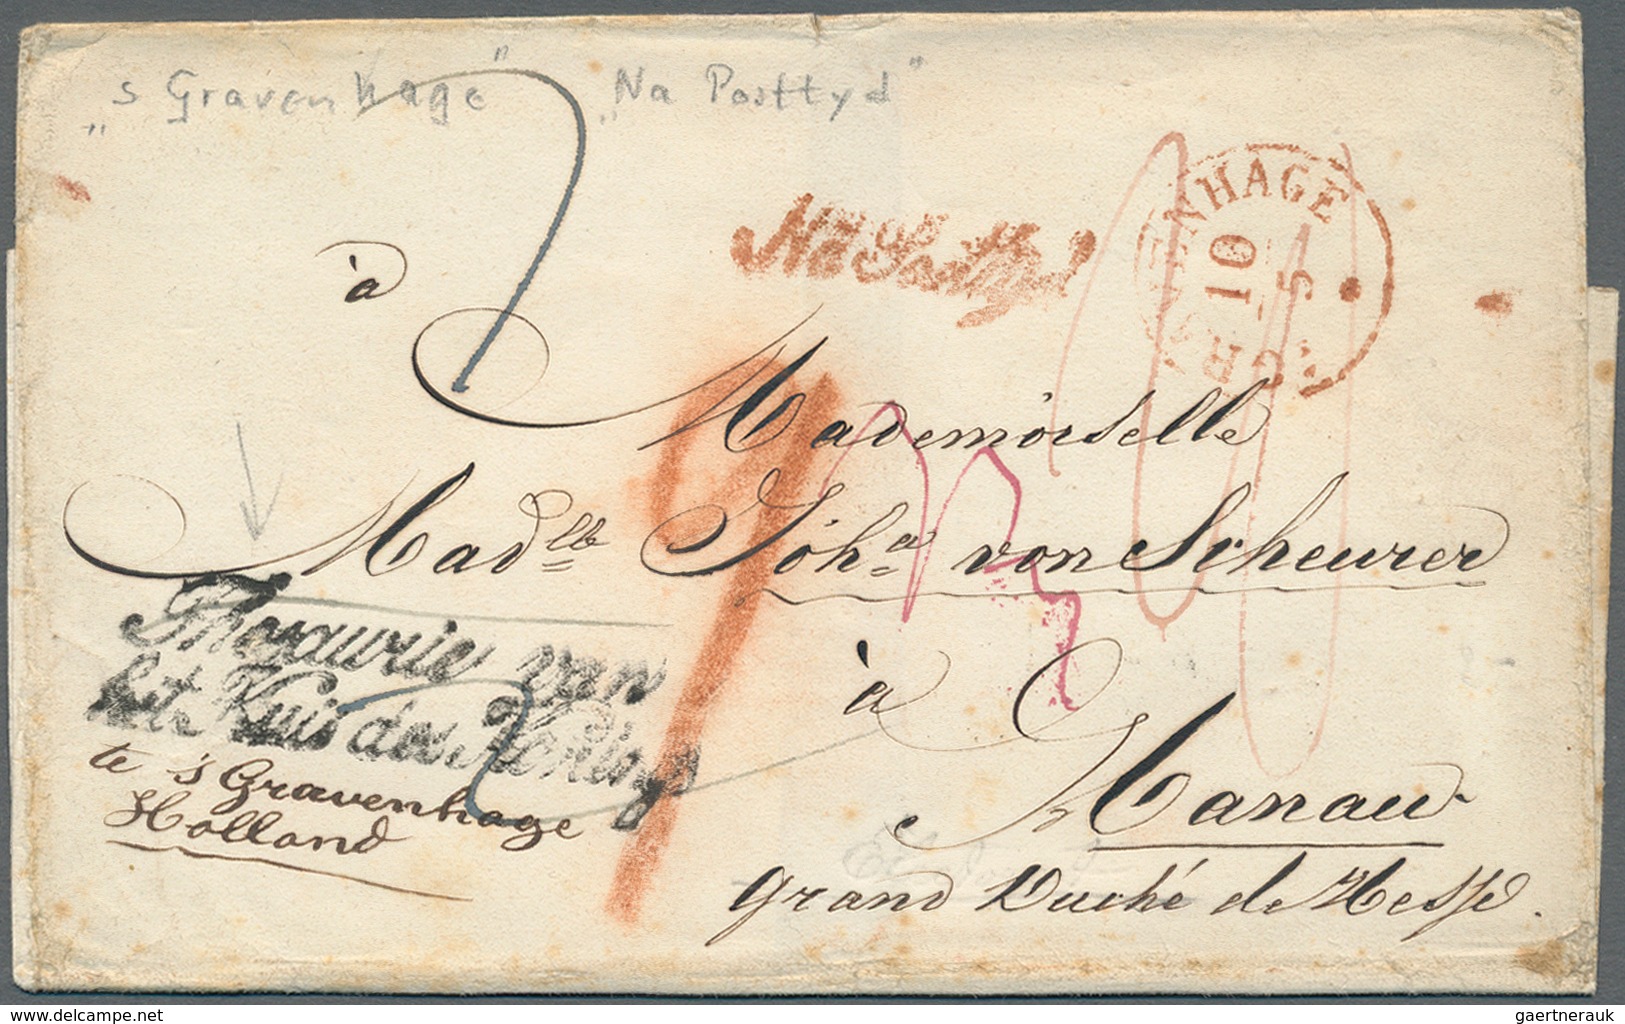 „s Gravenhage" „Na Posttyd"
Na Posttyd
'S GRAVENHAGE
10
5
à
Mademoiselle
Madlle Joha von Scheurer
à
Hanau
Grand Duché de Hesse.
Thesaurie van
het Huis des Konings
te 's Gravenhage
Holland
gaertnerauk